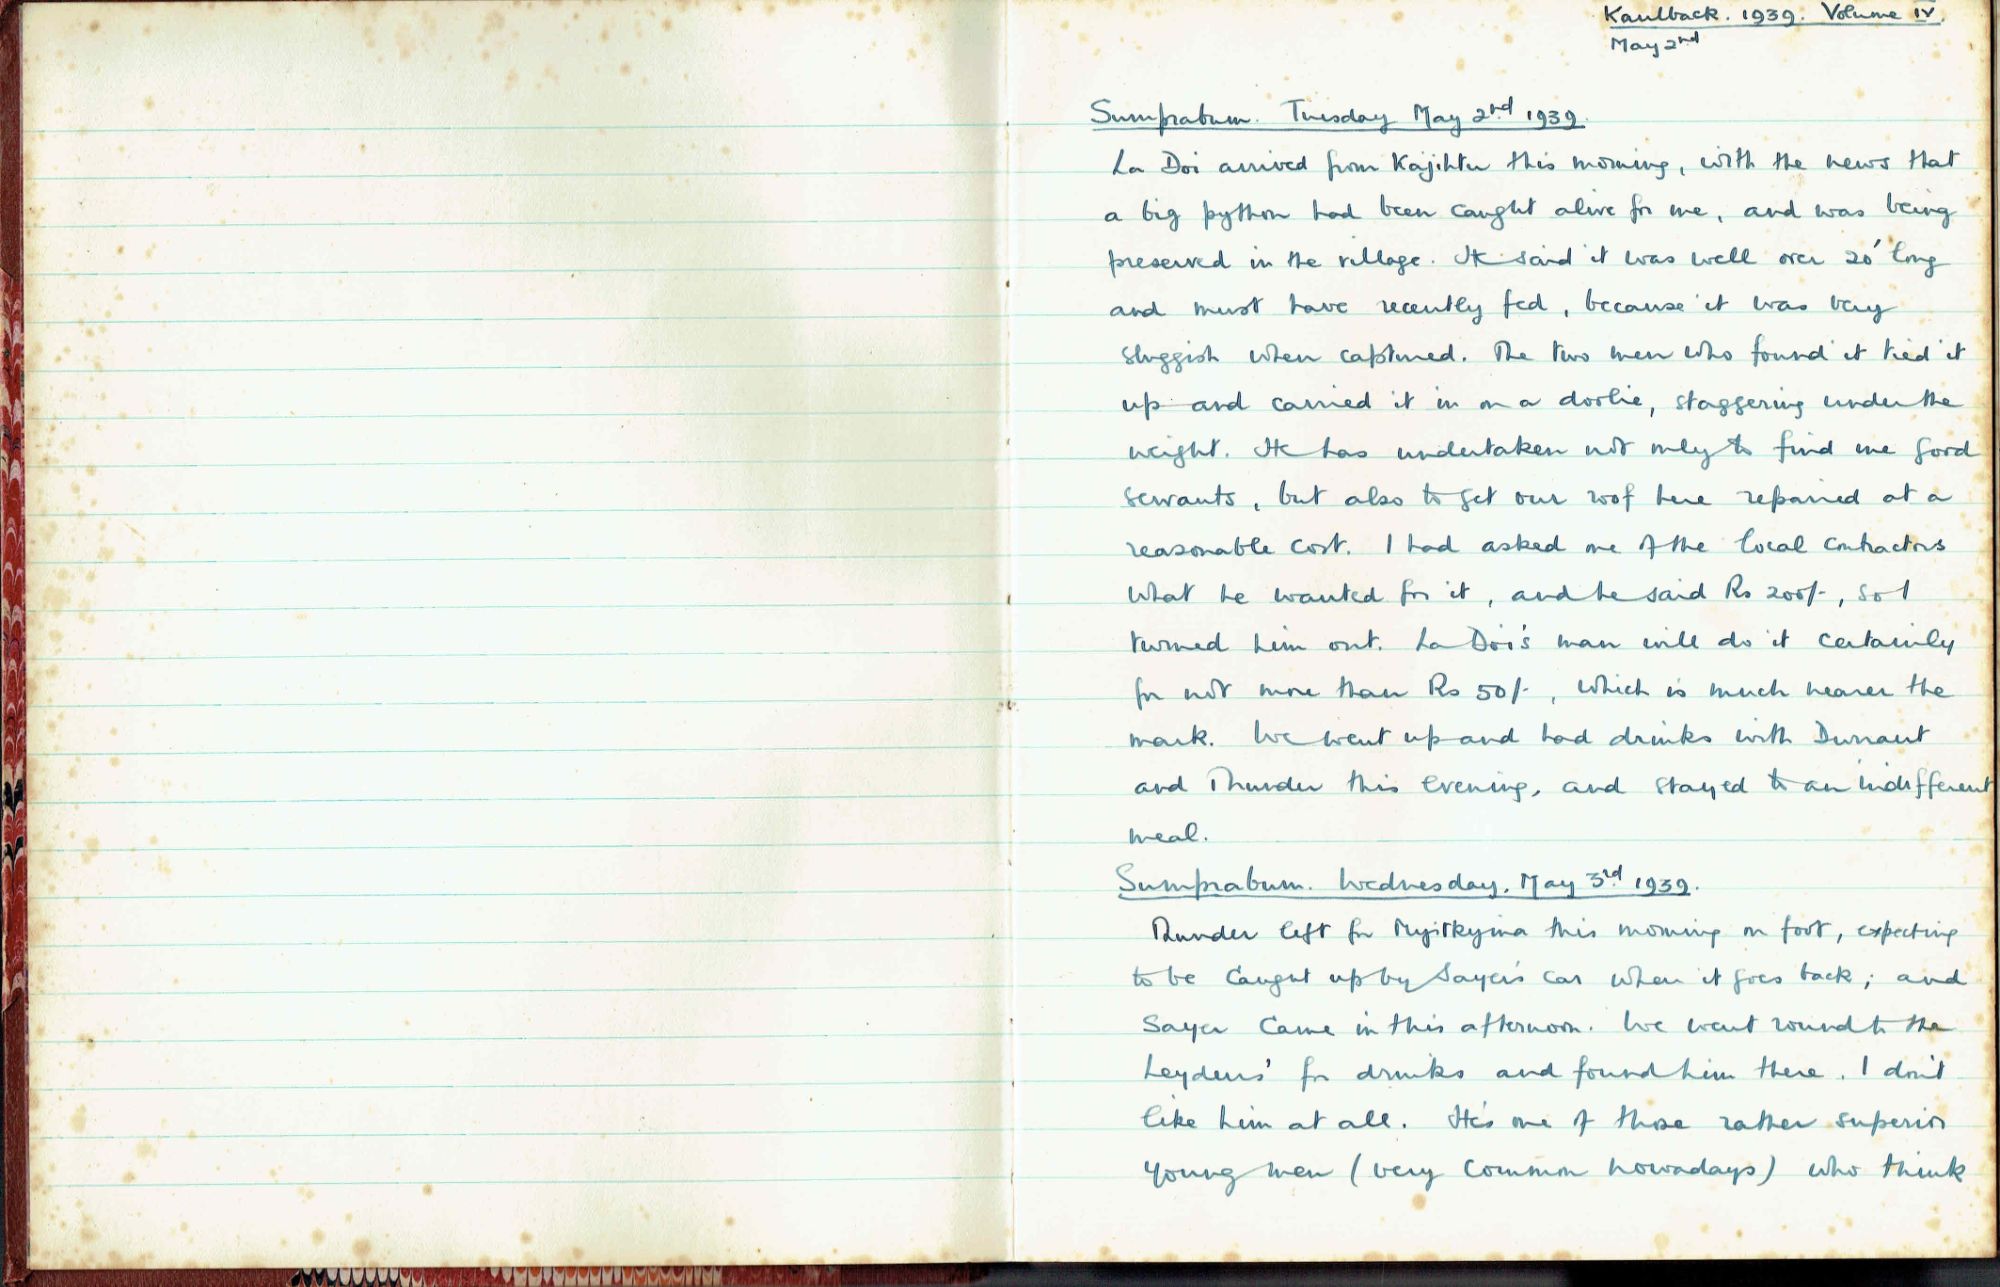 Kaulback. 1939. Volume IV.
May 2nd
Sumprabum. Tuesday May 2nd 1939.
La Doi arrived from Kajihtu this morning, with the news that
a big python had been caught alive for me, and was being
preserved in the village. He said it was well over 20' long
and must have recently fed, because it was very
sluggish when captured. The two men who found it tied it
up and carried it in on a doolie, staggering under the
weight. He has undertaken not only to find me good
servants, but also to get our roof here repaired at a
reasonable cost. I had asked one of the local contractors
what he wanted for it, and he said Rs 200/-, so I
turned him out. La Doi's man will do it certainly
for not more than Rs 50/-, which is much nearer the
mark. We went up and had drinks with Durrant
and Thunder this evening, and stayed to an indifferent
meal.
Sumprabum. Wednesday. May 3rd 1939.
Thunder left for Myitkyina this morning on foot, expecting
to be caught up by Sayer's car when it goes back; and
Sayer came in this afternoon. We went round to the
Leydens' for drinks and found him there. I don't
like him at all. He's one of those rather superior
young men (very common nowadays) who think